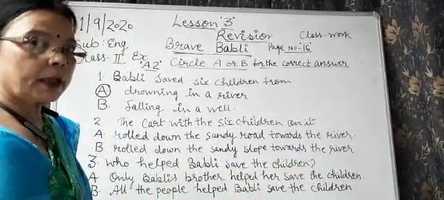 1/9/2020 Lesson '3'
Revision Class-work
Sub Eng Brave Babli Page no-16
Class-II Ex 'A2' Circle A or B for the correct answer
1 Babli saved six children from
A drowning in a river
B falling in a well.
2 The cart with the six children on it
A rolled down the sandy road towards the river.
B rolled down the sandy slope towards the river
3. Who helped Babli save the children?
A Only Babli's brother helped her save the children.
B. All the people helped Babli save the children